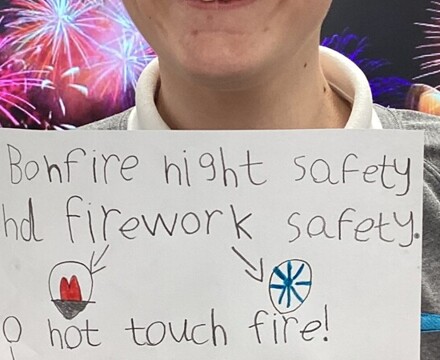 Bonfire night safety
nd firework safety.
o not touch fire!